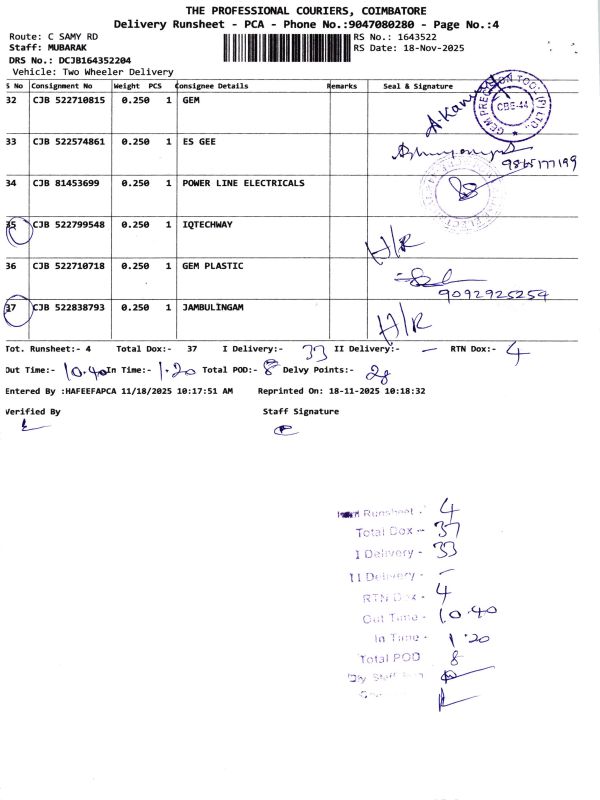 THE PROFESSIONAL COURIERS, COIMBATORE
Delivery Runsheet - PCA - Phone No.:9047080280 - Page No.:4
Route: C SAMY RD RS No.: 1643522
Staff: MUBARAK RS Date: 18-Nov-2025
DRS No.: DCJB164352204
Vehicle: Two Wheeler Delivery
S No Consignment No Weight PCS Consignee Details Remarks Seal & Signature
32 CJB 522710815 0.250 1 GEM A.Kanya
GEM PRECISION TOOL (P) LTD., CBE-44
33 CJB 522574861 0.250 1 ES GEE
9865177199
34 CJB 81453699 0.250 1 POWER LINE ELECTRICALS
35 CJB 522799548 0.250 1 IQTECHWAY H/R
36 CJB 522710718 0.250 1 GEM PLASTIC
9092925254
37 CJB 522838793 0.250 1 JAMBULINGAM H/R
Tot. Runsheet:- 4 Total Dox:- 37 I Delivery:- 33 II Delivery:- - RTN Dox:- 4
Out Time:- 10.40 In Time:- 1.20 Total POD:- 8 Delvy Points:- 28
Entered By :HAFEEFAPCA 11/18/2025 10:17:51 AM Reprinted On: 18-11-2025 10:18:32
Verified By Staff Signature
Runsheet - 4
Total Dox - 37
I Delivery - 33
II Delivery - -
RTN Dox - 4
Out Time - 10.40
In Time - 1.20
Total POD 8
Dly Staff